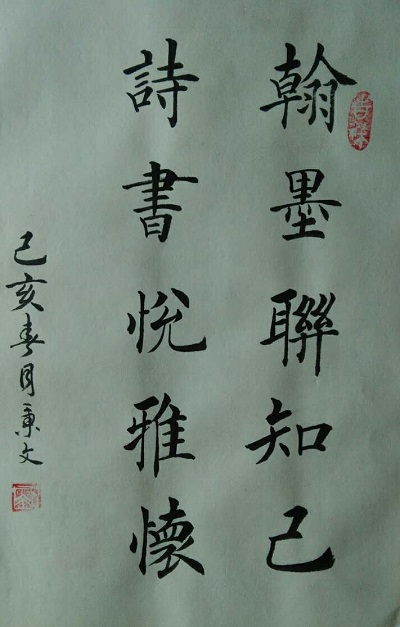 翰墨聯知己
詩書悅雅懷
己亥春月秉文